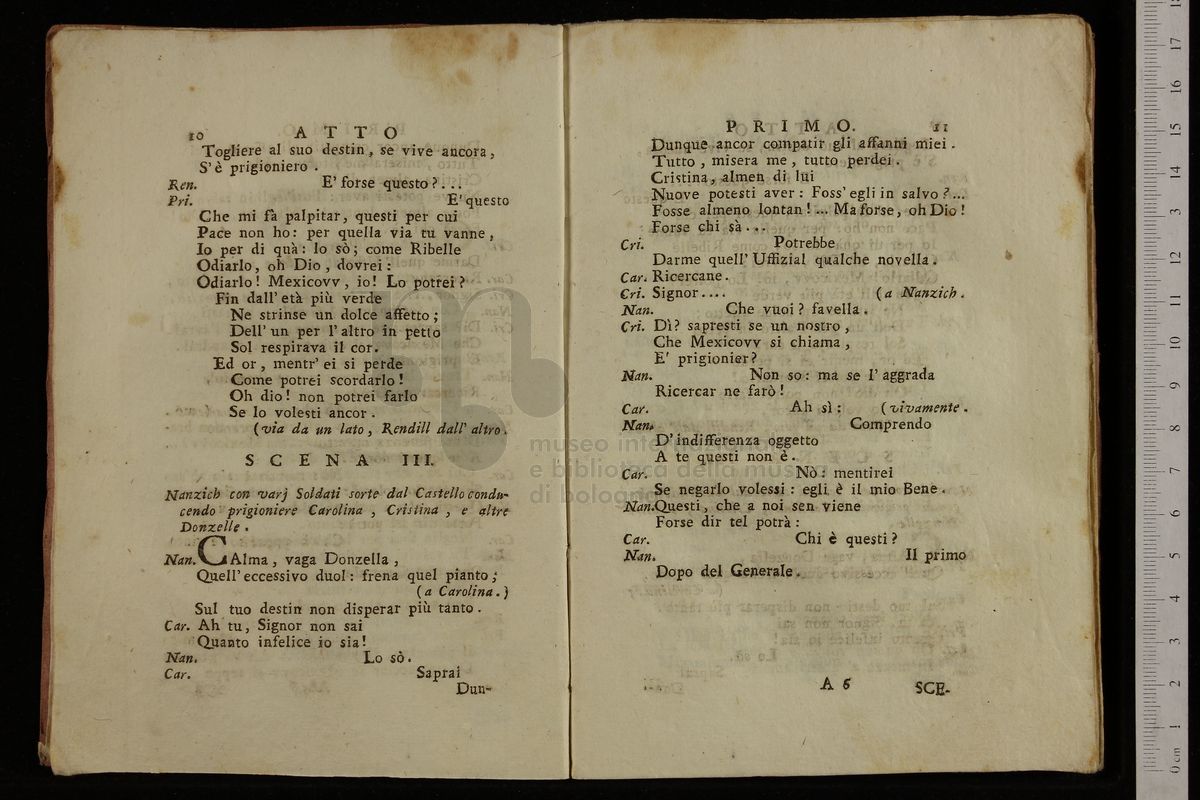 10 ATTO
Togliere al suo destin, se vive ancora,
S'è prigioniero.
Ren. E' forse questo?...
Pri. E' questo
Che mi fà palpitar, questi per cui
Pace non ho: per quella via tu vanne,
Io per di quà: lo sò; come Ribelle
Odiarlo, oh Dio, dovrei:
Odiarlo! Mexicovv, io! Lo potrei?
Fin dall' età più verde
Ne strinse un dolce affetto;
Dell' un per l'altro in petto
Sol respirava il cor.
Ed or, mentr' ei si perde
Come potrei scordarlo!
Oh dio! non potrei farlo
Se lo volesti ancor.
(via da un lato, Rendill dall' altro.
SCENA III.
Nanzich con varj Soldati sorte dal Castello condu-
cendo prigioniere Carolina, Cristina, e altre
Donzelle.
Nan. CAlma, vaga Donzella,
Quell' eccessivo duol: frena quel pianto;
(a Carolina.)
Sul tuo destin non disperar più tanto.
Car. Ah tu, Signor non sai
Quanto infelice io sia!
Nan. Lo sò.
Car. Saprai
Dun-
PRIMO. 11
Dunque ancor compatir gli affanni miei.
Tutto, misera me, tutto perdei.
Cristina, almen di lui
Nuove potesti aver: Foss' egli in salvo?...
Fosse almeno lontan!... Ma forse, oh Dio!
Forse chi sà...
Cri. Potrebbe
Darme quell' Uffizial qualche novella.
Car. Ricercane.
Cri. Signor.... (a Nanzich.
Nan. Che vuoi? favella.
Cri. Dì? sapresti se un nostro,
Che Mexicovv si chiama,
E' prigionier?
Nan. Non so: ma se l' aggrada
Ricercar ne farò!
Car. Ah sì: (vivamente.
Nan. Comprendo
D' indifferenza oggetto
A te questi non è.
Car. Nò: mentirei
Se negarlo volessi: egli è il mio Bene.
Nan. Questi, che a noi sen viene
Forse dir tel potrà:
Car. Chi è questi?
Nan. Il primo
Dopo del Generale.
A 6 SCE-